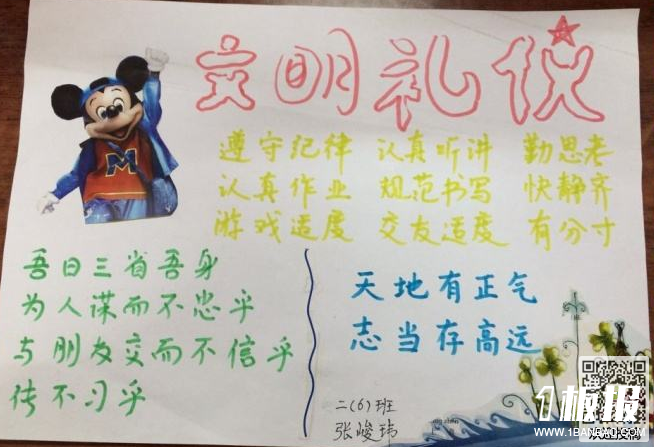 文明礼仪
遵守纪律 认真听讲 勤思考
认真作业 规范书写 快静齐
游戏适度 交友适度 有分寸
M
吾日三省吾身
为人谋而不忠乎
与朋友交而不信乎
传不习乎
天地有正气
志当存高远
二(6)班
张峻玮
1板报
WWW.1BANBAO.COM